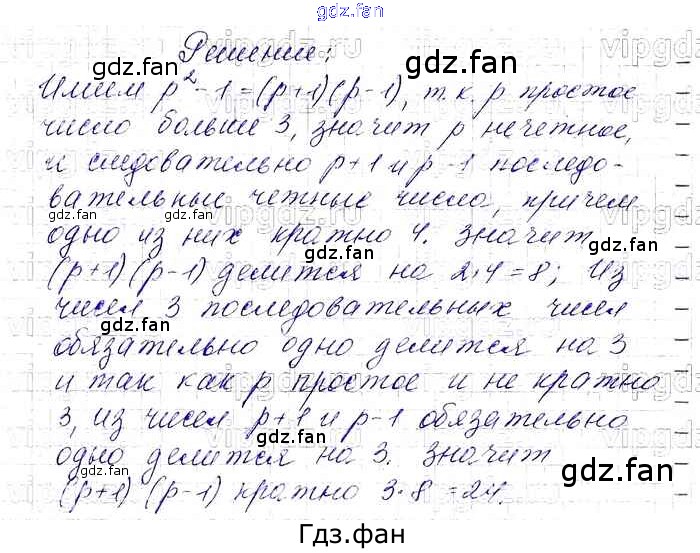 gdz.fan
Решение:
gdz.fan gdz.fan
Имеем p² - 1 = (p+1)(p-1), т.к. p простое
число больше 3, значит p нечетное,
и следовательно p+1 и p-1 последо-
вательные четные числа, причем
gdz.fan gdz.fan
одно из них кратно 4. Значит
(p+1)(p-1) делится на 2·4=8; Из
чисел 3 последовательных чисел
gdz.fan
обязательно одно делится на 3
и так как p простое и не кратно
3, из чисел p+1 и p-1 обязательно
gdz.fan gdz.fan
одно делится на 3. Значит
(p+1)(p-1) кратно 3·8=24.
gdz.fan
Гдз.фан